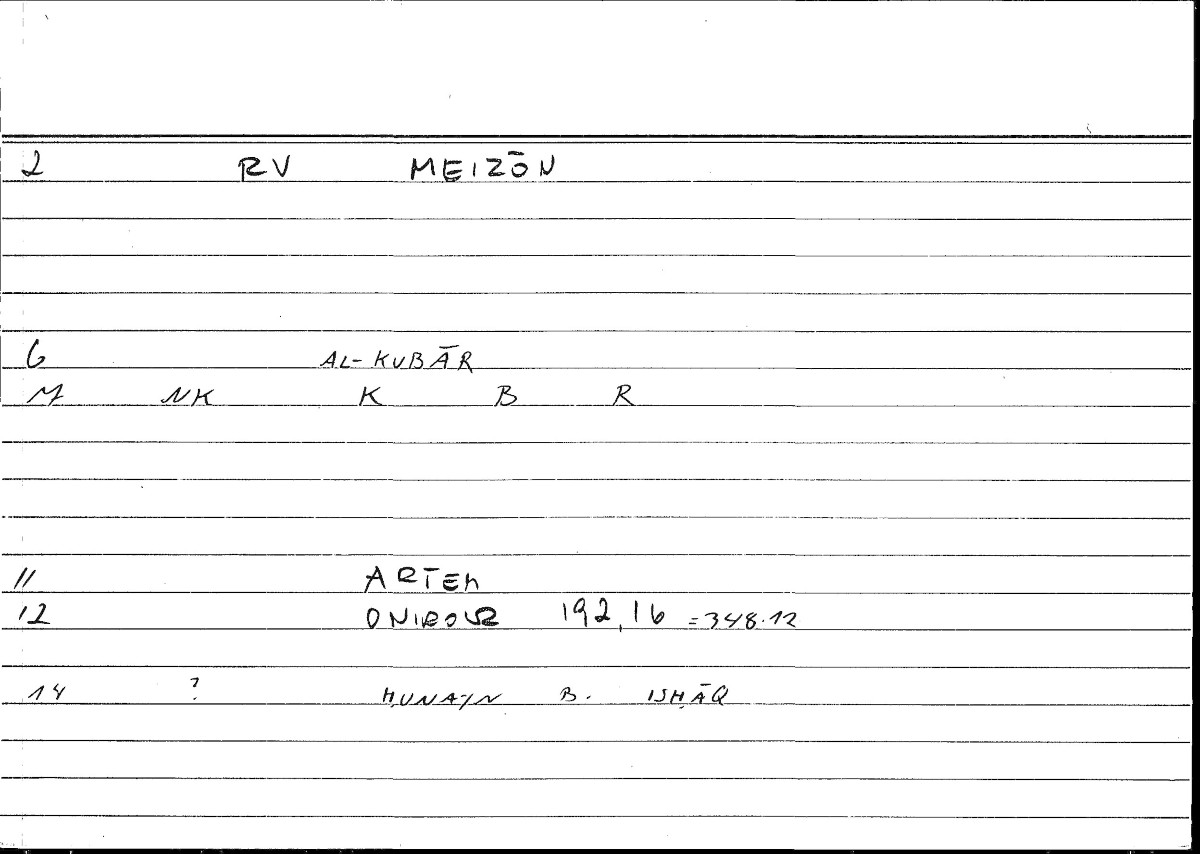 2 RV MEIZŌN
6 AL-KUBĀR
M NK K B R
11 ARTEM
12 ONIROUS 192,16 =348.12
14 ? ḤUNAYN B. ISḤĀQ